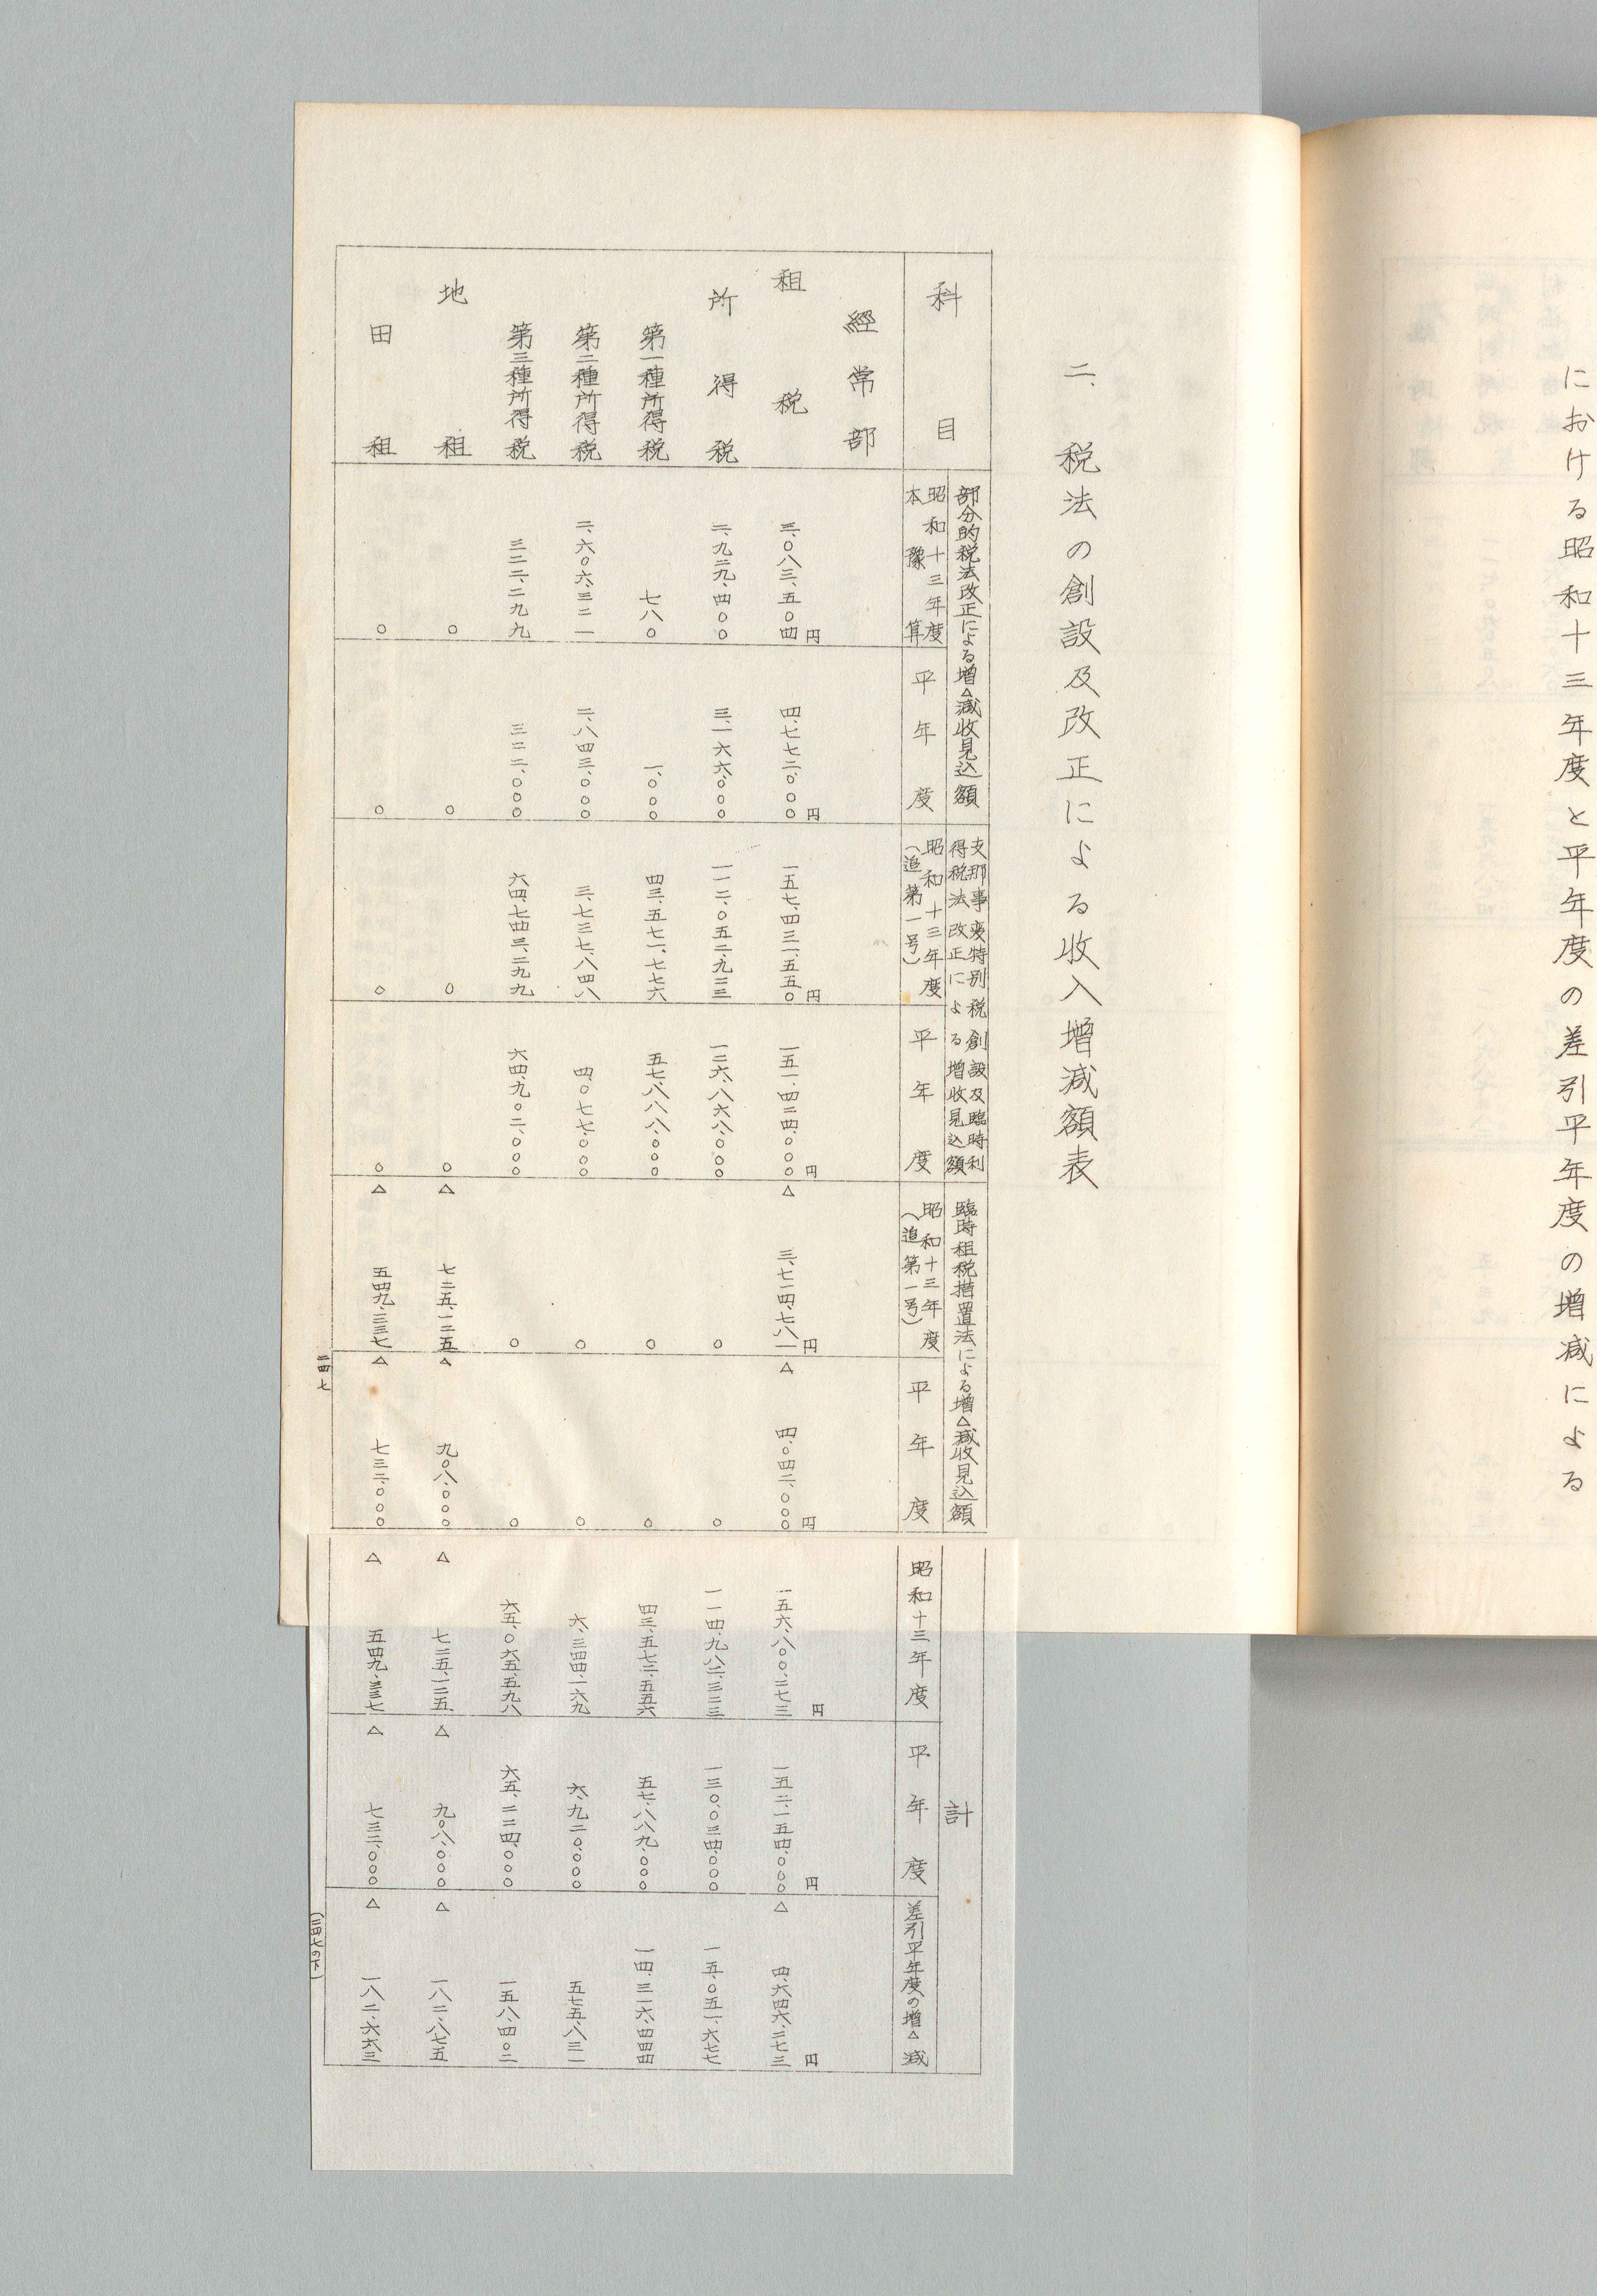 における昭和十三年度と平年度の差引平年度の増減による
二、税法の創設及改正による收入増減額表
科目
部分的税法改正による増△減收見込額
昭和十三年度本豫算
平年度
支那事変特別税創設及臨時利得税法改正による増收見込額
昭和十三年度(追第一号)
平年度
臨時租税措置法による増△減收見込額
昭和十三年度(追第一号)
平年度
計
昭和十三年度
平年度
差引平年度の増△減
經常部
租税 三、〇八三、五〇四円 四、七七二、〇〇〇円 一五七、四三一、五五〇円 一五一、四二四、〇〇〇円 △三、七一四、七八一円 △四、〇四二、〇〇〇円 一五六、八〇〇、二七三円 一五二、一五四、〇〇〇円 △四、六四六、二七三円
所得税 二、九二九、四〇〇 三、一六六、〇〇〇 一一二、〇五二、九二三 一二六、八六八、〇〇〇 〇 〇 一一四、九八二、三二三 一三〇、〇三四、〇〇〇 一五、〇五一、六七七
第一種所得税 七八〇 一、〇〇〇 四三、五七一、七七六 五七、八八八、〇〇〇 〇 〇 四三、五七二、五五六 五七、八八九、〇〇〇 一四、三一六、四四四
第二種所得税 二、六〇六、三二一 二、八四三、〇〇〇 三、七三七、八四八 四、〇七七、〇〇〇 〇 〇 六、三四四、一六九 六、九二〇、〇〇〇 五七五、八三一
第三種所得税 三二二、二九九 三二二、〇〇〇 六四、七四三、二九九 六四、九〇二、〇〇〇 〇 〇 六五、〇六五、五九八 六五、二二四、〇〇〇 一五八、四〇二
地租 〇 〇 〇 〇 △七二五、一二五 △九〇八、〇〇〇 △七二五、一二五 △九〇八、〇〇〇 △一八二、八七五
田租 〇 〇 〇 〇 △五四九、三三七 △七三二、〇〇〇 △五四九、三三七 △七三二、〇〇〇 △一八二、六六三
二四七
(二四七の下)